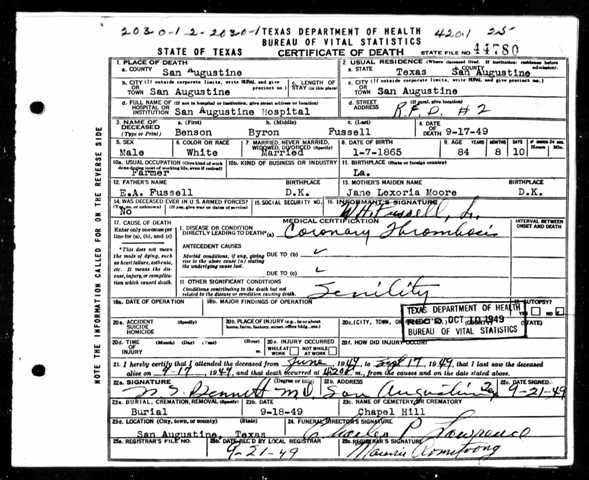 2030-1-2-2030-1 TEXAS DEPARTMENT OF HEALTH 4201 25
BUREAU OF VITAL STATISTICS
STATE OF TEXAS CERTIFICATE OF DEATH STATE FILE NO. 44780
1. PLACE OF DEATH 2. USUAL RESIDENCE (Where deceased lived. If institution: residence before admission).
a. COUNTY San Augustine a. STATE Texas b. COUNTY San Augustine
b. CITY (If outside corporate limits, write RURAL and give precinct no.) OR TOWN San Augustine c. LENGTH OF STAY (in this place) c. CITY (If outside corporate limits, write RURAL and give precinct no.) OR TOWN San Augustine
d. FULL NAME OF (If not in hospital or institution, give street address or location) HOSPITAL OR INSTITUTION San Augustine Hospital d. STREET ADDRESS (If rural, give location) R.F.D. #2
3. NAME OF DECEASED (Type or Print) a. (First) Benson b. (Middle) Byron c. (Last) Fussell 4. DATE OF DEATH 9-17-49
5. SEX Male 6. COLOR OR RACE White 7. MARRIED, NEVER MARRIED, WIDOWED, DIVORCED (Specify) Married 8. DATE OF BIRTH 1-7-1865 9. AGE YEARS 84 MONTHS 8 DAYS 10
10a. USUAL OCCUPATION (Give kind of work done during most of working life, even if retired) Farmer 10b. KIND OF BUSINESS OR INDUSTRY 11. BIRTHPLACE (State or foreign country) La.
12. FATHER'S NAME E.A. Fussell BIRTHPLACE D.K. 13. MOTHER'S MAIDEN NAME Jane Lexoria Moore BIRTHPLACE D.K.
14. WAS DECEASED EVER IN U.S. ARMED FORCES? (Yes, no, or unknown) No (If yes, give war or dates of service) 15. SOCIAL SECURITY NO. 16. INFORMANT'S SIGNATURE Fussell, Jr.
17. CAUSE OF DEATH MEDICAL CERTIFICATION INTERVAL BETWEEN ONSET AND DEATH
Enter only one cause per line for (a), (b), and (c) I. DISEASE OR CONDITION DIRECTLY LEADING TO DEATH* (a) Coronary Thrombosis
*This does not mean the mode of dying, such as heart failure, asthenia, etc. It means the disease, injury, or complication which caused death.
ANTECEDENT CAUSES
Morbid conditions, if any, giving rise to the above cause (a) stating the underlying cause last. DUE TO (b)
DUE TO (c)
II. OTHER SIGNIFICANT CONDITIONS
Conditions contributing to the death but not related to the disease or condition causing death. Senility
19a. DATE OF OPERATION 19b. MAJOR FINDINGS OF OPERATION AUTOPSY? YES NO
TEXAS DEPARTMENT OF HEALTH
REC'D. OCT 10 1949
BUREAU OF VITAL STATISTICS
20a. ACCIDENT SUICIDE HOMICIDE (Specify) 20b. PLACE OF INJURY (e.g., in or about home, farm, factory, street, office bldg., etc.) 20c. (CITY, TOWN, (STATE)
20d. TIME OF INJURY (Month) (Day) (Year) (Hour) 20e. INJURY OCCURRED WHILE AT WORK NOT WHILE AT WORK 20f. HOW DID INJURY OCCUR?
21. I hereby certify that I attended the deceased from June 1949, to Sept 17, 1949, that I last saw the deceased
alive on 9-17, 1949, and that death occurred at m., from the causes and on the date stated above.
22a. SIGNATURE Bennett MD (Degree or title) 22b. ADDRESS San Augustine 22c. DATE SIGNED 9-21-49
23a. BURIAL, CREMATION, REMOVAL (Specify) Burial 23b. DATE 9-18-49 23c. NAME OF CEMETERY OR CREMATORY Chapel Hill
23d. LOCATION (City, town, or county) (State) San Augustine, Texas 24. FUNERAL DIRECTOR'S SIGNATURE Charles P. Lawrence
25a. REGISTRAR'S FILE NO. 25b. DATE REC'D BY LOCAL REGISTRAR 9-21-49 25c. REGISTRAR'S SIGNATURE Armstrong
NOTE THE INFORMATION CALLED FOR ON THE REVERSE SIDE